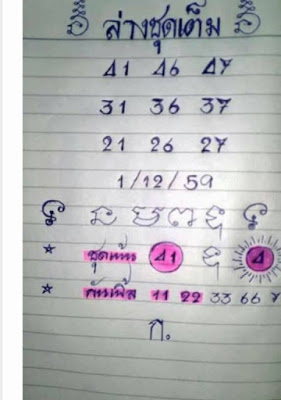 ล่างชุดเต็ม
41 46 47
31 36 37
21 26 27
1/12/59
* ชุดเด่น 41 4
* กันเบิ้ล 11 22 33 66 7
ก.